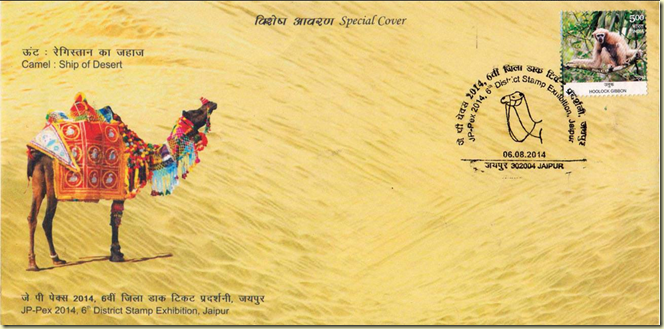 विशेष आवरण Special Cover
ऊँट : रेगिस्तान का जहाज
Camel : Ship of Desert
5.00
HOOLOCK GIBBON
जे पी पेक्स 2014, 6वीं जिला डाक टिकट प्रदर्शनी, जयपुर
JP-Pex 2014, 6th District Stamp Exhibition, Jaipur
06.08.2014
जयपुर 302004 JAIPUR
जे पी पेक्स 2014, 6वीं जिला डाक टिकट प्रदर्शनी, जयपुर
JP-Pex 2014, 6th District Stamp Exhibition, Jaipur